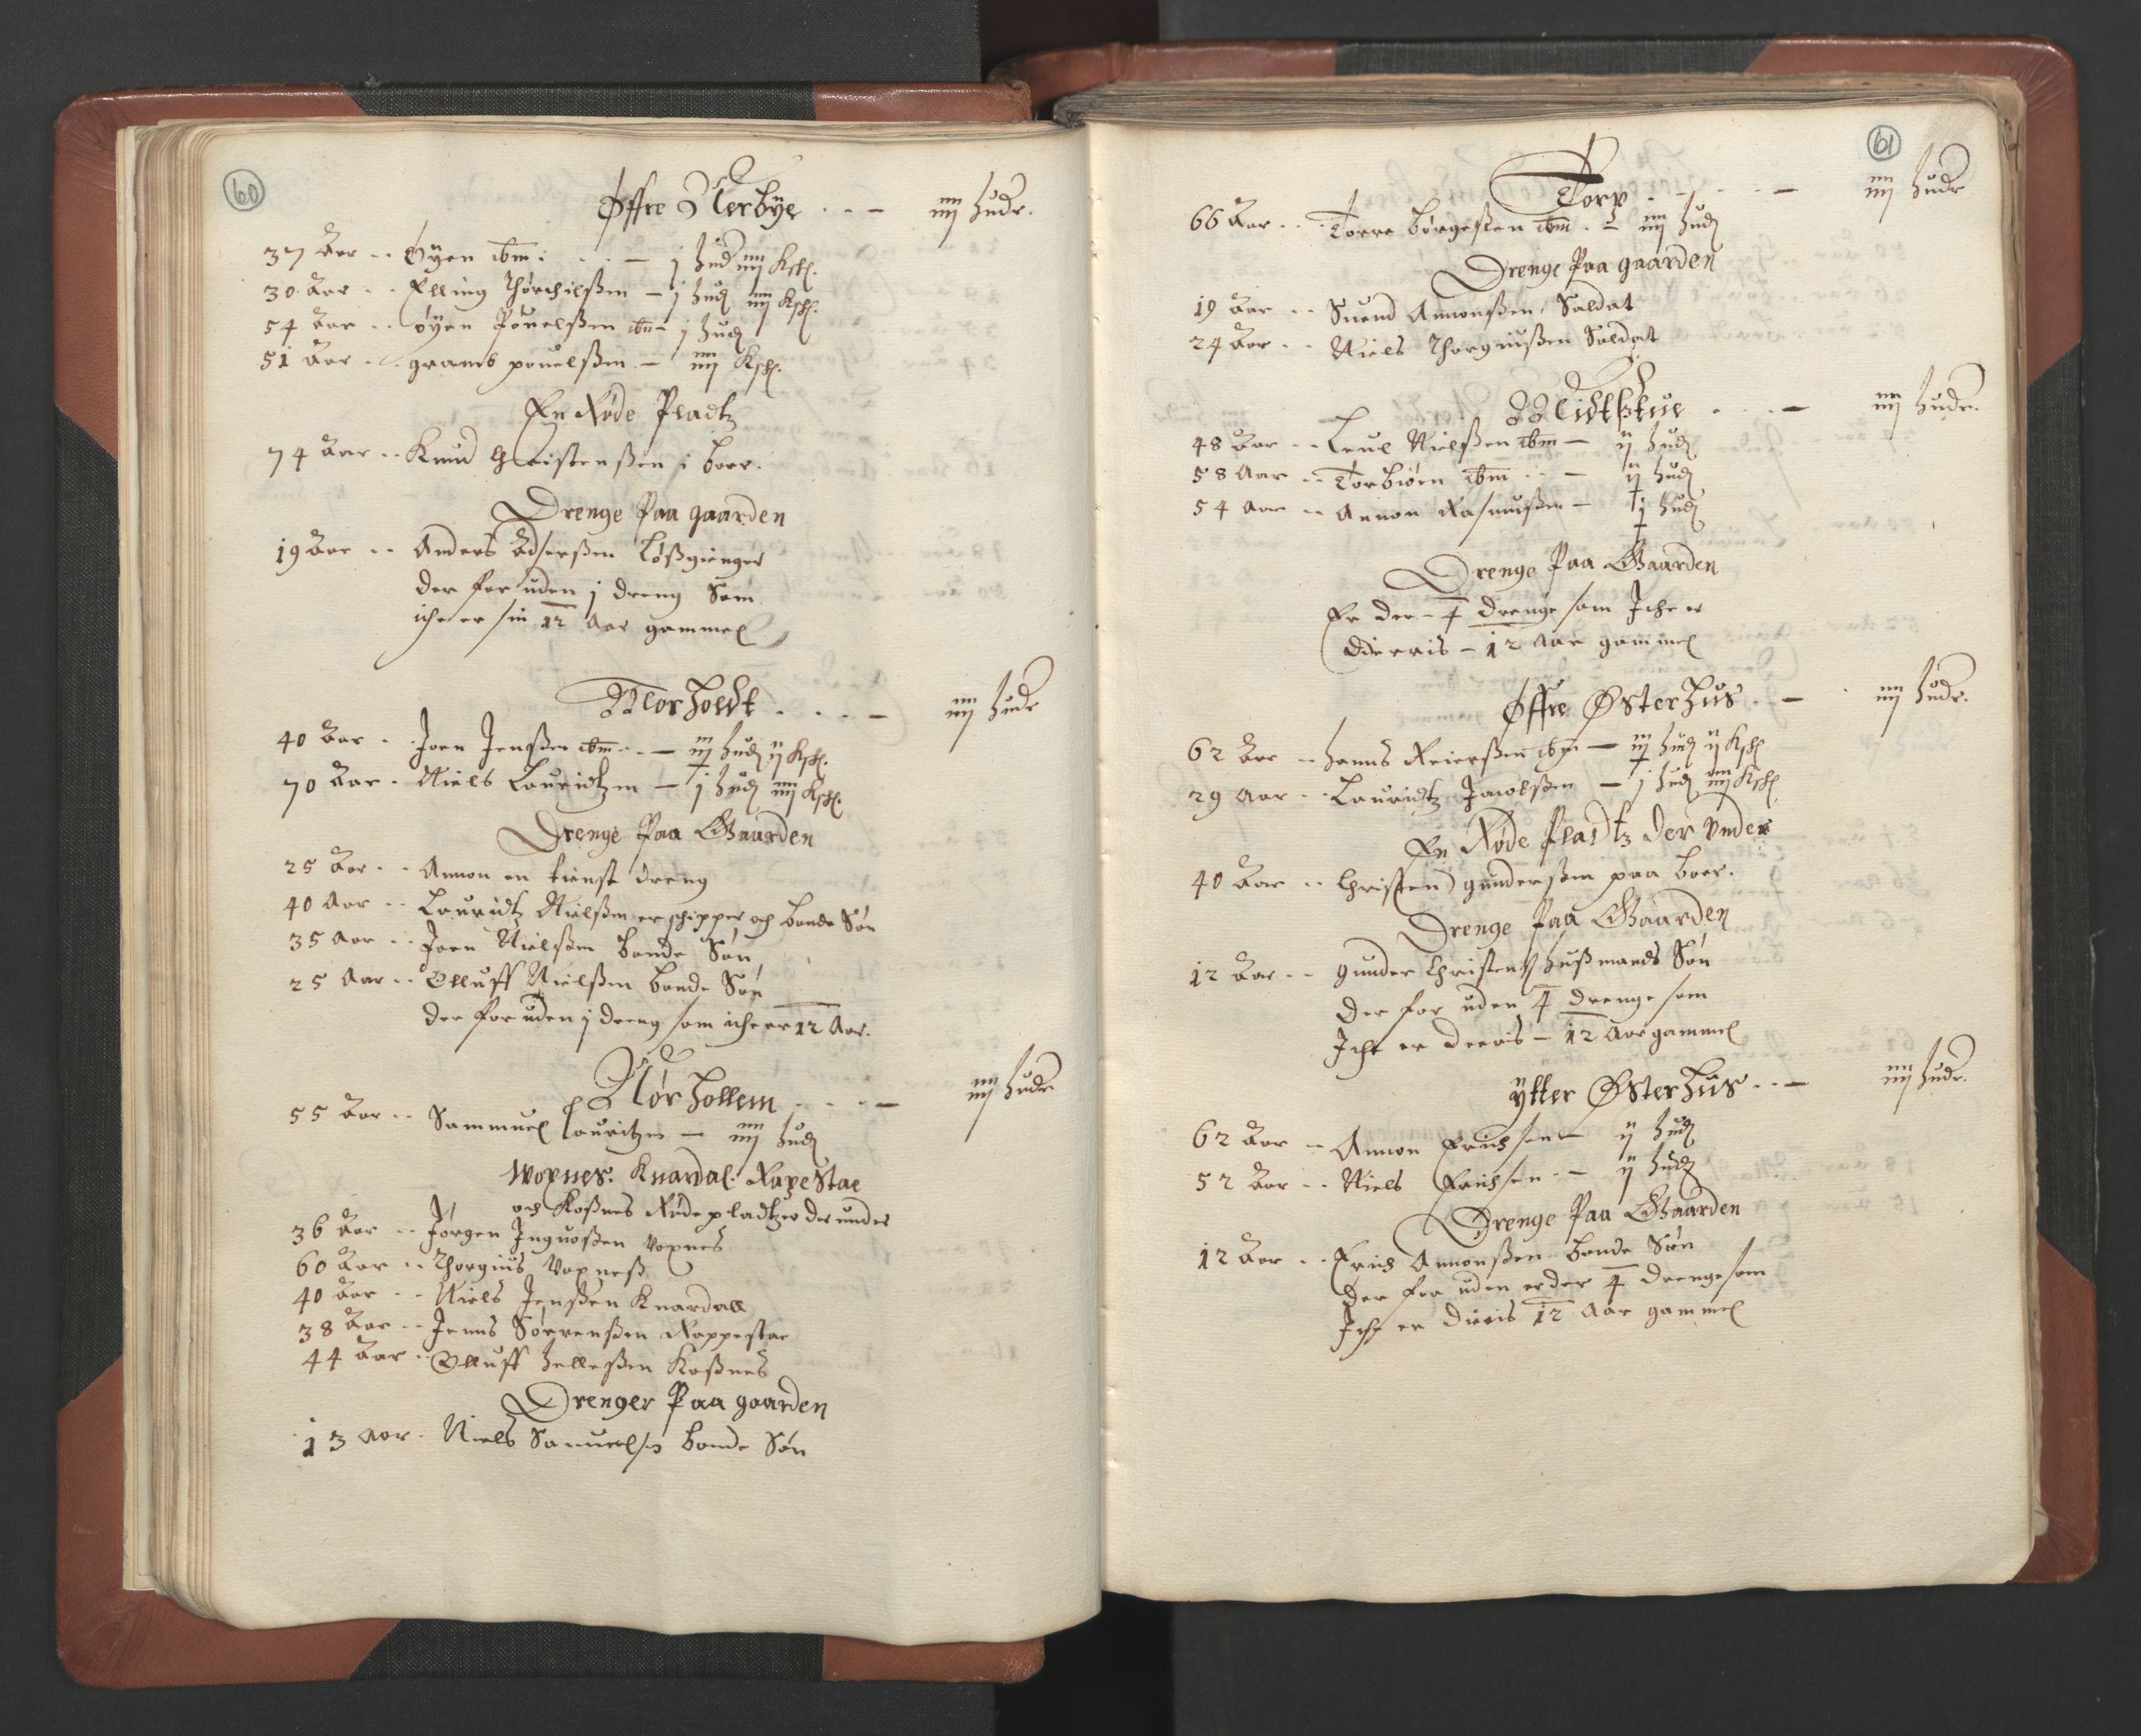 60
Øffre Nerbye - - - iiij hudr.
37 Aar - - Øÿen ibm: - - - j hud iiij Ksk.
30 Aar - - Elling Thorchilßen - j hud iiij Ksk.
54 Aar - - øÿen Pouelßen ibm - j hud
51 Aar - - gramb pouelßen - iiij Ksk.
En Røde Pladtz
74 Aar - - Knud Christenßen i boer.
Drenge Paa gaarden
19 Aar - - Anders Adserßen Løßgienger
der for uden j dreng Som
iche er sin 12 Aar gammel
Morholdt - - - - iiij hudr
40 Aar - Joen Jenßen ibm - - iij hud ij Ksk.
70 Aar - Niels Lauridtzen - j hud iiij Ksk.
Drenge Paa Gaarden
25 Aar - - Annon en tienste dreng
40 Aar - - Lauridtz Nielßen er schipper och bonde Søn
35 Aar - - Joen Nielßen bonde Søn
25 Aar - - Olluff Nielßen bonde Søn
der for uden j dreng som iche er 12 Aar.
Nørhollem - - - - iiij hudr
55 Aar - - Sammuel Lauritzen - iiij hud
Wopnes. Knardal. Rapestae
och Koßnes Røde pladtzer der under
36 Aar - - Jørgen Inguoßen Vopnes
60 Aar - - Thorgius Vopneß
40 Aar - - Niels Jenßen Knardall
38 Aar - - Jenns Sørrenßen Rappestae
44 Aar - - Olluff Helleßen Koßnes
Drenger Paa gaarden
13 Aar - Niels Samuelsen bonde Søn
61
Torp - - - - iiij hudr
66 Aar - - Torre Børgeßen ibm - - iiij hud
Drenge Paa gaarden
19 Aar - - Suend Annonßen Saldat
24 Aar - - Niels Thorgiußen Saldat
Midtstue - - - iiij hudr.
48 Aar - - Leul Nielßen ibm - ij hud
58 Aar - - Torbiørn ibm - - ij hud
54 Aar - - Annon Rasmußen - j hud
Drenge Paa Gaarden
Er der - 4 drenge som Iche er
dierris - 12 Aar gammel
Øffre Østerhus - - iiij hudr.
62 Aar - - Hanns Reierßen ibm - iij hud ij Ksk
29 Aar - - Lauridtz Jacobßen - j hud iiij Ksk
En Røde Pladtz der Under
40 Aar - - Christen gunderßen paa boer.
Drenge Paa Gaarden
12 Aar - - gunder Christens hußmands Søn
der for uden 4 drenge som
Iche er deeris - 12 Aar gammel
ÿtter Østerhus - - - iiij hudr.
62 Aar - - Annon Erichsen - ij hud
52 Aar - - Niels Erichsen - - ij hud
Drenge Paa Gaarden
12 Aar - - Erich Annonßen bonde Søn
der for uden er der 4 drenge som
Iche er dieris 12 Aar gammel